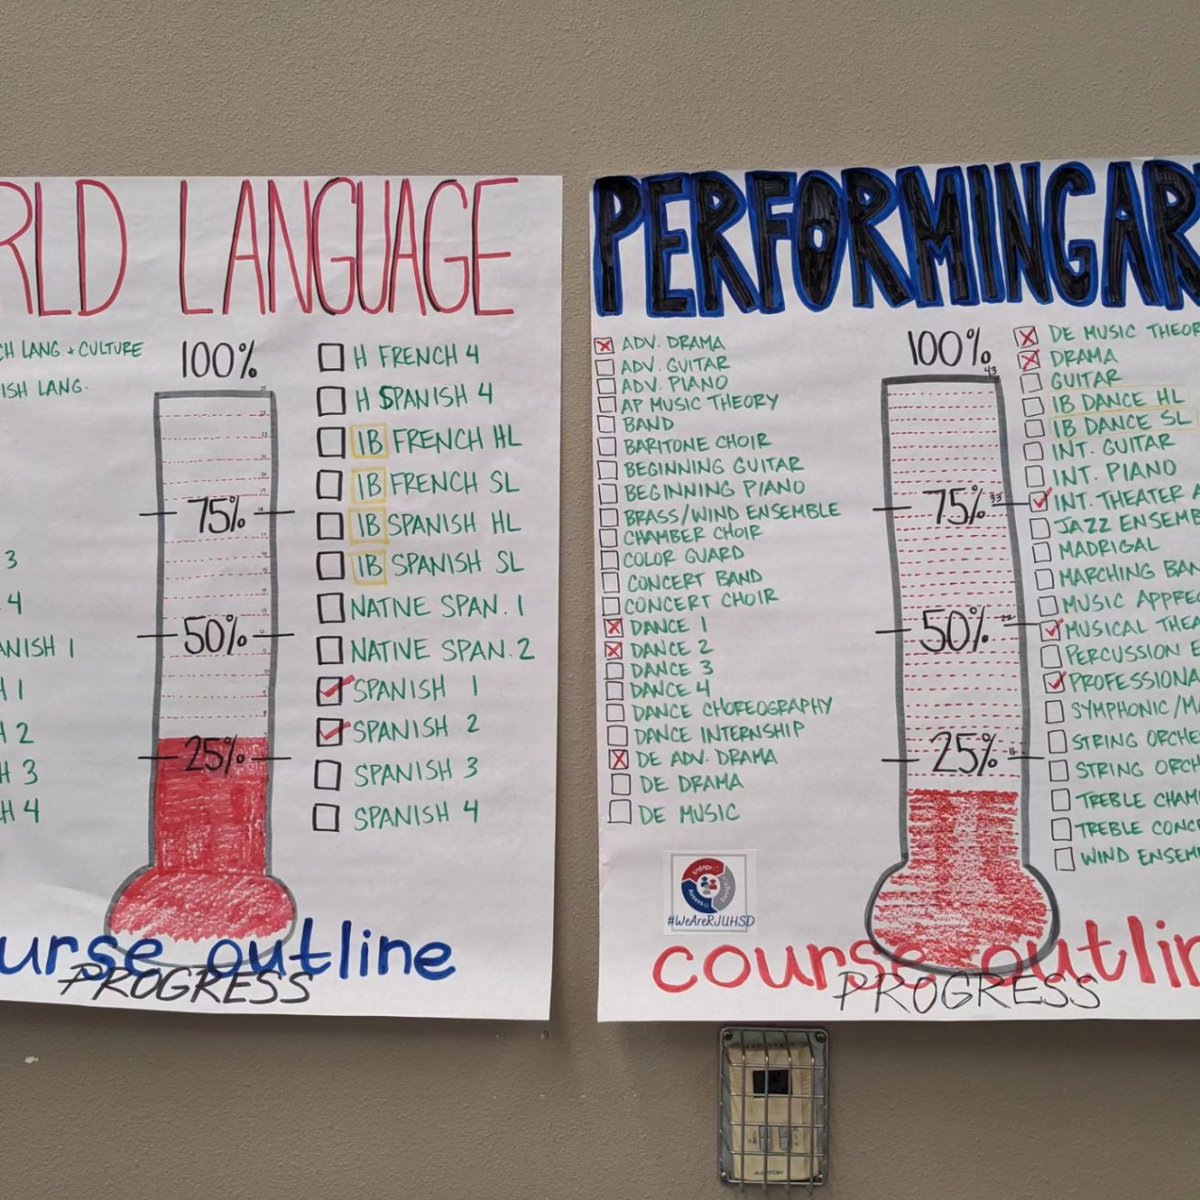 RLD LANGUAGE
CH LANG + CULTURE
ISH LANG.
3
4
ANISH 1
H 1
H 2
H 3
H 4
100%
75%
50%
25%
H FRENCH 4
H SPANISH 4
IB FRENCH HL
IB FRENCH SL
IB SPANISH HL
IB SPANISH SL
NATIVE SPAN. 1
NATIVE SPAN. 2
SPANISH 1
SPANISH 2
SPANISH 3
SPANISH 4
urse outline
PROGRESS
PERFORMING AR
ADV. DRAMA
ADV. GUITAR
ADV. PIANO
AP MUSIC THEORY
BAND
BARITONE CHOIR
BEGINNING GUITAR
BEGINNING PIANO
BRASS/WIND ENSEMBLE
CHAMBER CHOIR
COLOR GUARD
CONCERT BAND
CONCERT CHOIR
DANCE 1
DANCE 2
DANCE 3
DANCE 4
DANCE CHOREOGRAPHY
DANCE INTERNSHIP
DE ADV. DRAMA
DE DRAMA
DE MUSIC
100%
43
75%
33
50%
22
25%
11
DE MUSIC THEOR
DRAMA
GUITAR
IB DANCE HL
IB DANCE SL
INT. GUITAR
INT. PIANO
INT. THEATER A
JAZZ ENSEMB
MADRIGAL
MARCHING BAN
MUSIC APPREC
MUSICAL THEA
PERCUSSION E
PROFESSIONA
SYMPHONIC/MA
STRING ORCHE
STRING ORCH
TREBLE CHAM
TREBLE CONC
WIND ENSEM
#WeAreRJUHSD
course outlin
PROGRESS